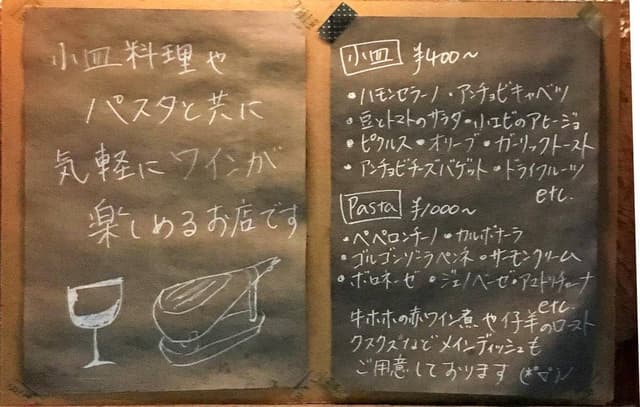 小皿料理や
パスタと共に
気軽にワインが
楽しめるお店です
小皿 ¥400〜
・ハモンセラーノ ・アンチョビキャベツ
・豆とトマトのサラダ ・小エビのアヒージョ
・ピクルス ・オリーブ ・ガーリックトースト
・アンチョビチーズバゲット ・ドライフルーツ
etc.
Pasta ¥1000〜
・ペペロンチーノ ・カルボナーラ
・ゴルゴンゾーラペンネ ・サーモンクリーム
・ボロネーゼ ・ジェノベーゼ ・アマトリチャーナ
etc.
牛ホホの赤ワイン煮や仔羊のロースト
クスクスなどメインディッシュも
ご用意しております (*°▽°)ノ